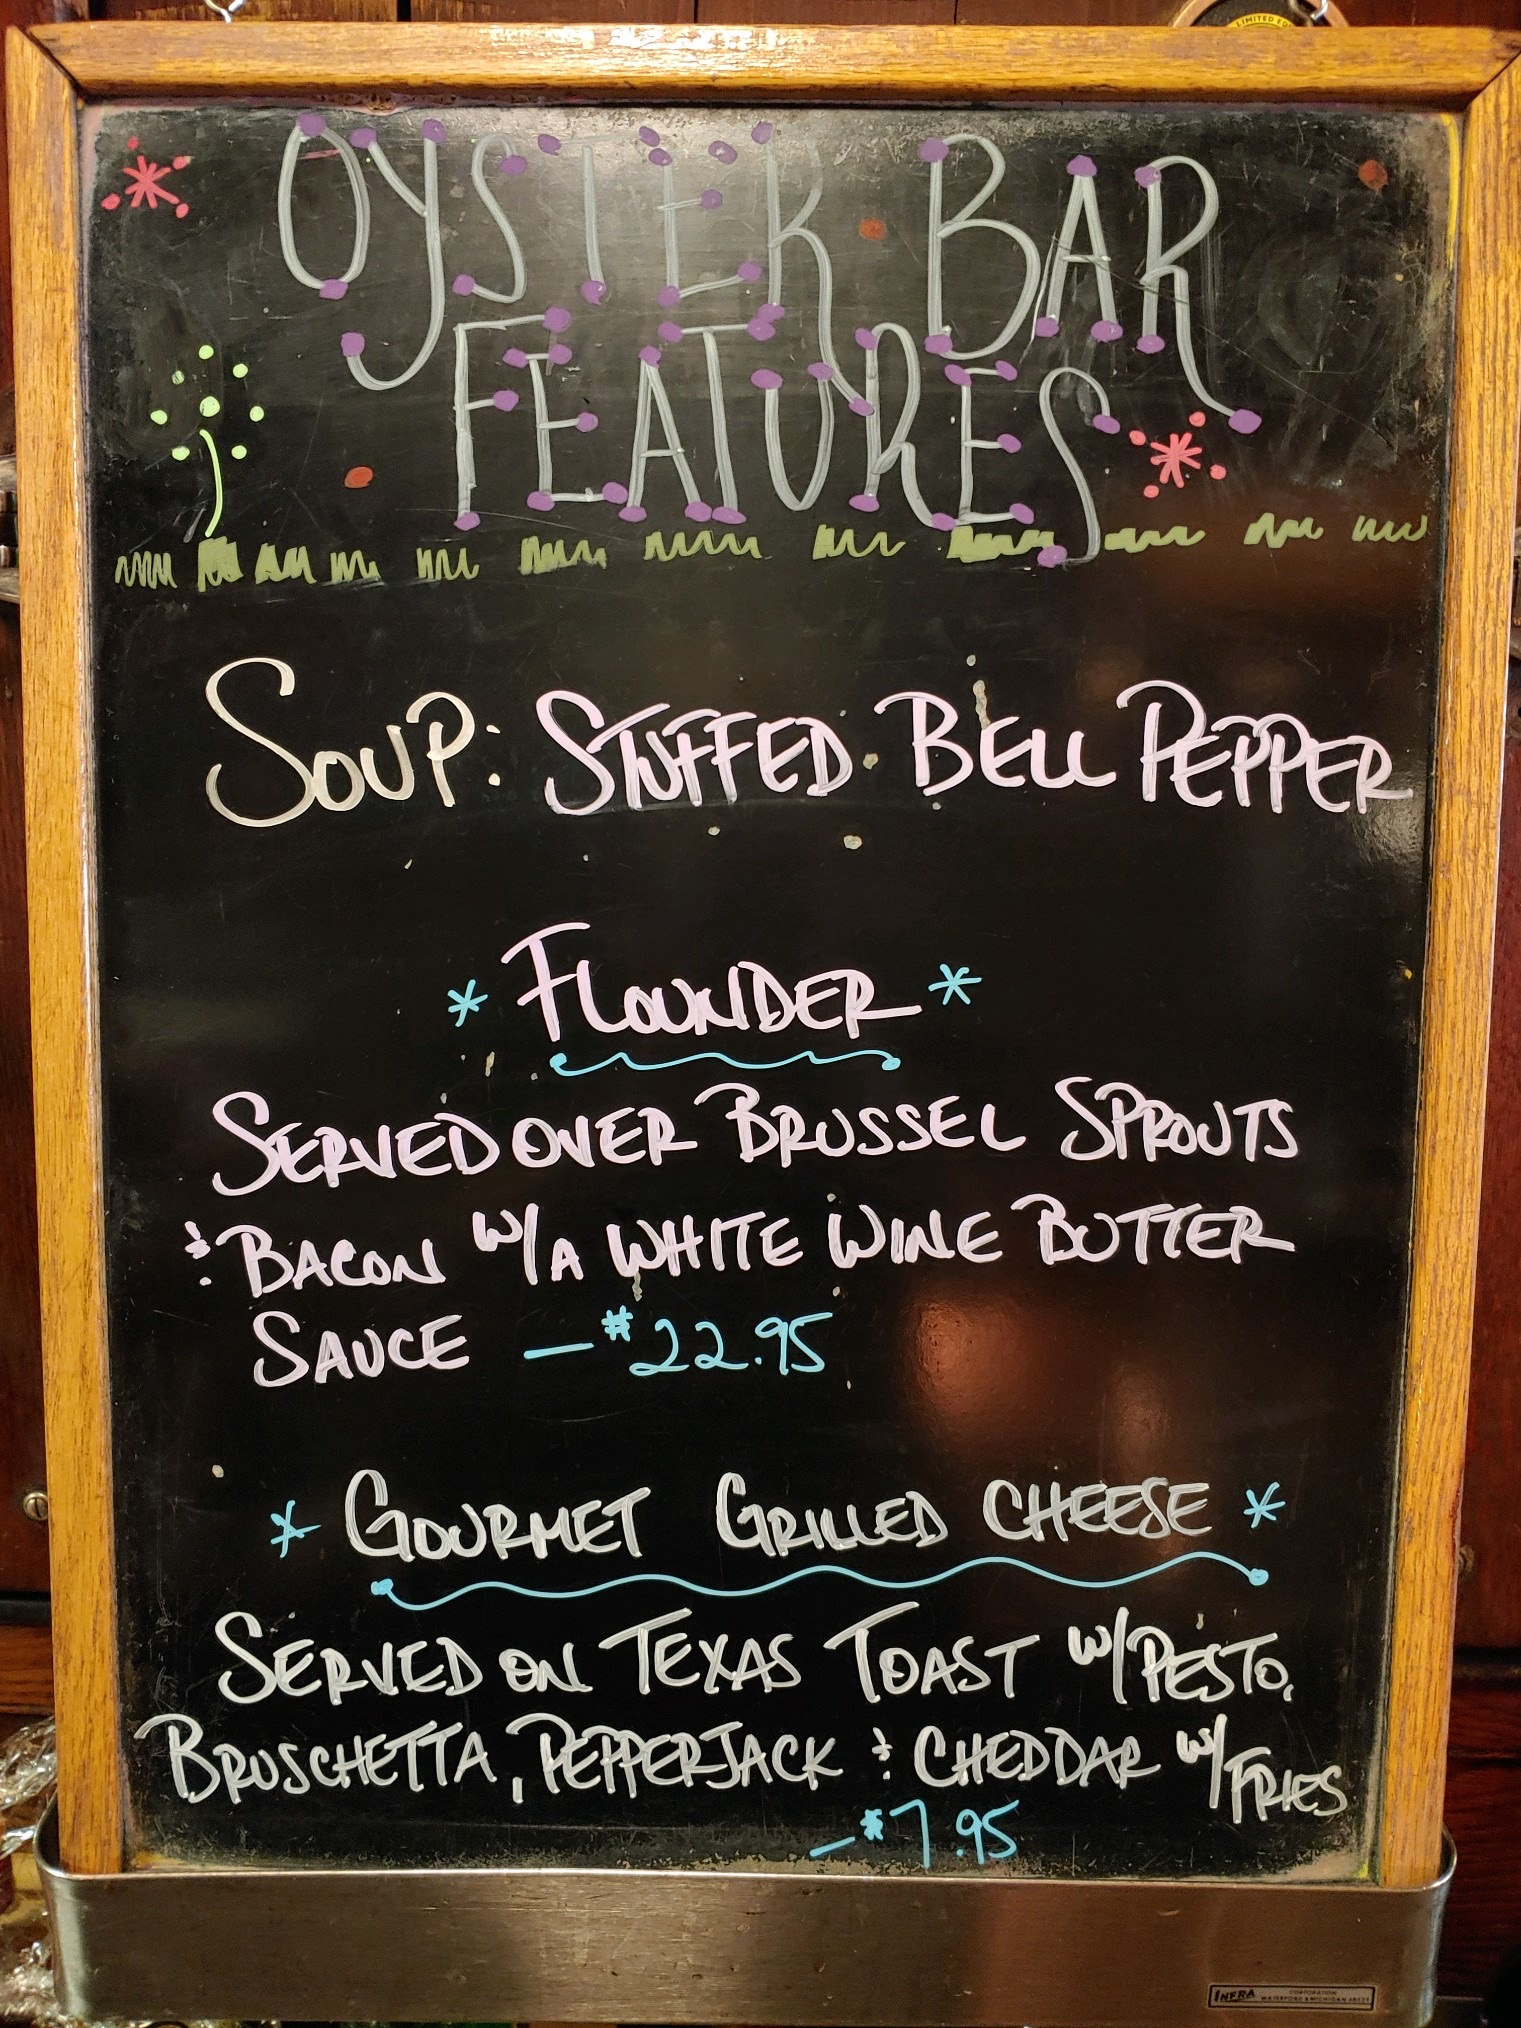 LIMITED
OYSTER BAR
FEATURES
SOUP: STUFFED BELL PEPPER
* FLOUNDER *
SERVED OVER BRUSSEL SPROUTS
& BACON W/A WHITE WINE BUTTER
SAUCE — $22.95
* GOURMET GRILLED CHEESE *
SERVED ON TEXAS TOAST W/PESTO,
BRUSCHETTA, PEPPERJACK & CHEDDAR W/FRIES
— $7.95
INFRA CORPORATION
WATERFORD MICHIGAN